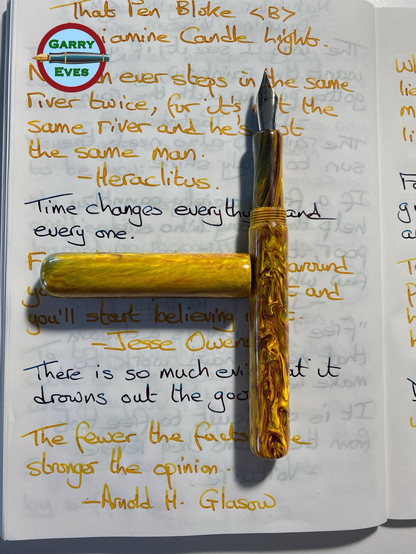 GARRY
EVES
Thats Pen Bloke <B>
iamine Candle Light.
N n ever steps in the same
river twice, for it's t the
same river and he's ot
the same man.
-Heraclitus.
Time changes everythi and
every one.
F around
yo t and
you'll start believing t.
-Jesse Owen
There is so much evi at it
drowns out the goo
The fewer the facts e
stronger the opinion.
-Arnold H. Glasow